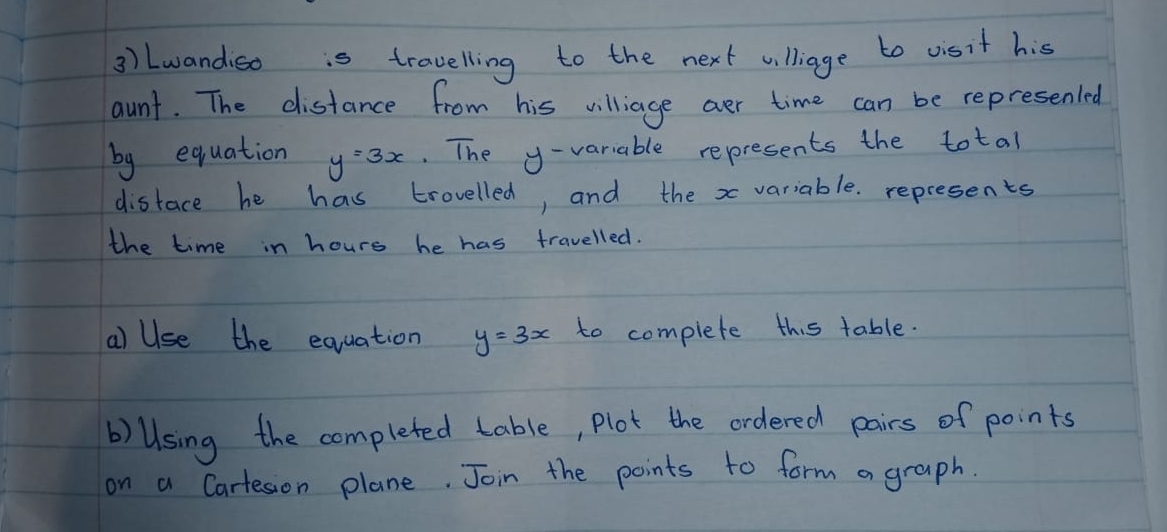 3) Lwandiso is travelling to the next villiage to visit his
aunt. The distance from his villiage over time can be represented
by equation y=3x. The y-variable represents the total
distace he has trovelled, and the x variable. represents
the time in hours he has travelled.
a) Use the equation y=3x to complete this table.
b) Using the completed table, Plot the ordered pairs of points
on a Cartesion plane. Join the points to form a graph.